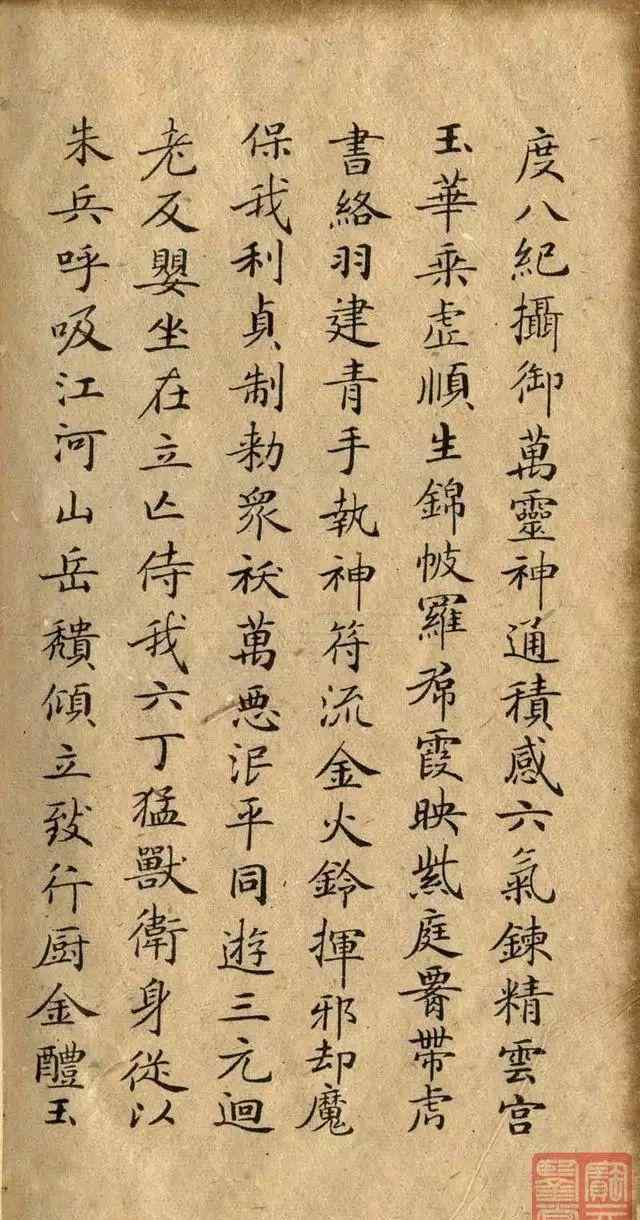 度八紀攝御萬靈神通積感六氣鍊精雲宮
玉華乘虛順生錦帔羅帬霞映紫庭腎帶虎
書絡羽建青手執神符流金火鈴揮邪却魔
保我利貞制勑眾祅萬惡泯平同遊三元迴
老反嬰坐在立亡侍我六丁猛獸衛身從以
朱兵呼吸江河山岳頹傾立致行厨金醴玉